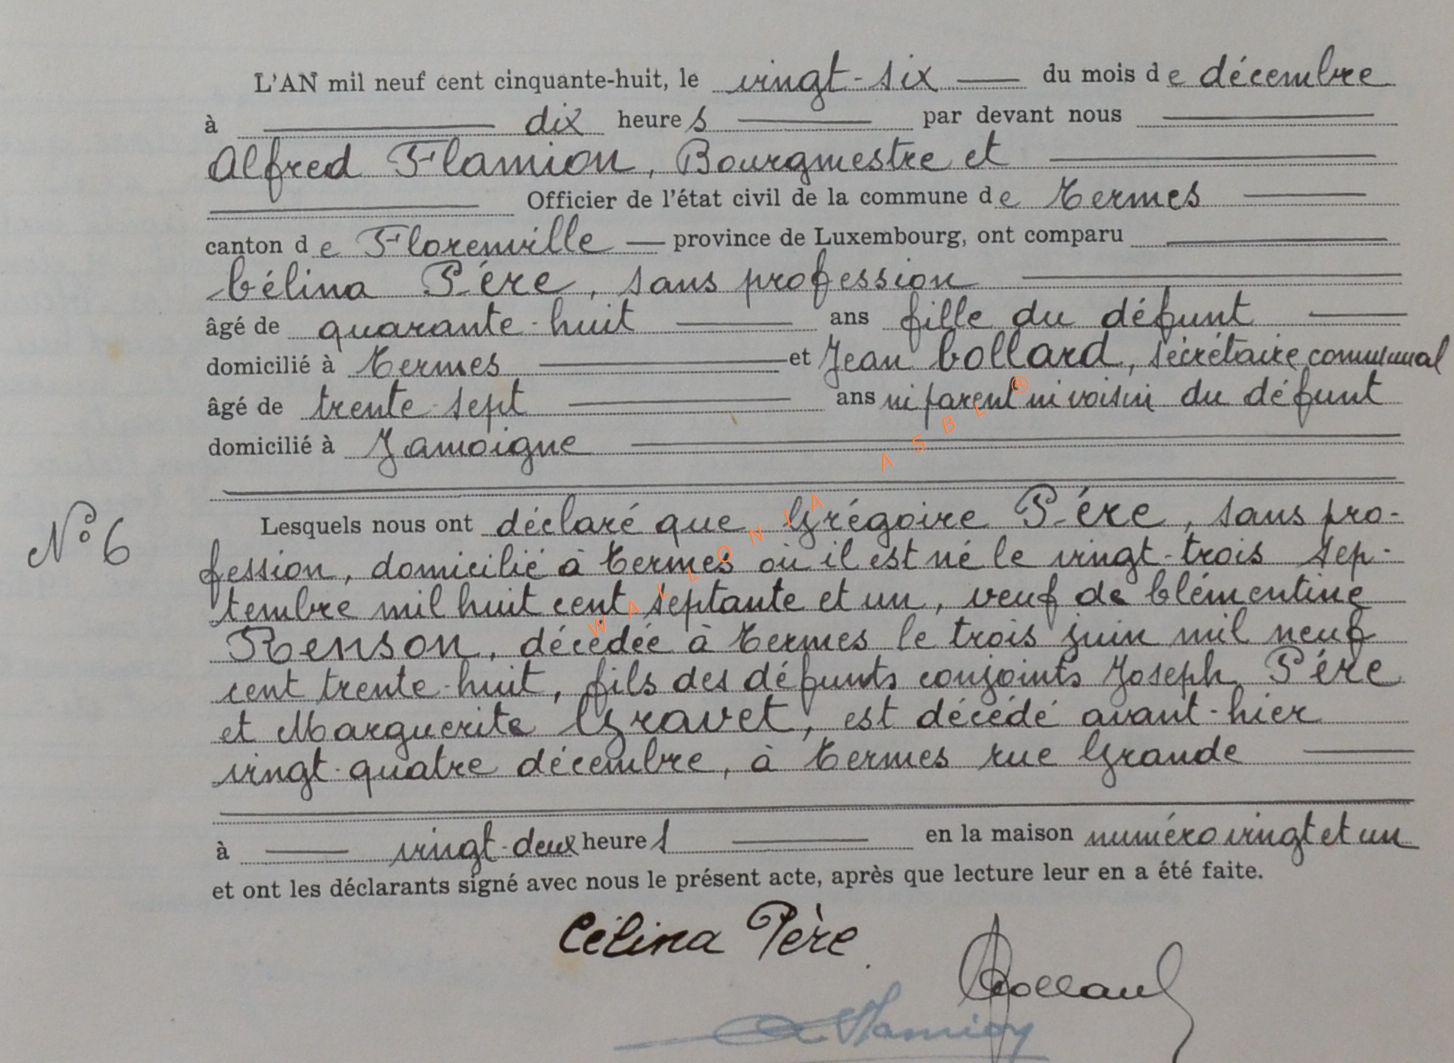 L'AN mil neuf cent cinquante-huit, le vingt-six du mois de décembre
à dix heures par devant nous
Alfred Flamion, Bourgmestre et
Officier de l'état civil de la commune de Termes
canton de Florenville province de Luxembourg, ont comparu
Célina Père, sans profession
âgé de quarante-huit ans fille du défunt
domicilié à Termes et Jean Collard, secrétaire communal
âgé de trente-sept ans ni parent ni voisin du défunt
domicilié à Jamoigne
N° 6
Lesquels nous ont déclaré que Grégoire Père, sans pro-
fession, domicilié à Termes où il est né le vingt-trois sep-
tembre mil huit cent septante et un, veuf de Clémentine
Renson, décédée à Termes le trois juin mil neuf
cent trente-huit, fils des défunts conjoints Joseph Père
et Marguerite Gravet, est décédé avant-hier
vingt-quatre décembre, à Termes rue Grande
à vingt-deux heures en la maison numéro vingt et un
et ont les déclarants signé avec nous le présent acte, après que lecture leur en a été faite.
Célina Père
JCollard
AFlamion
WALLONIA ASBL ®